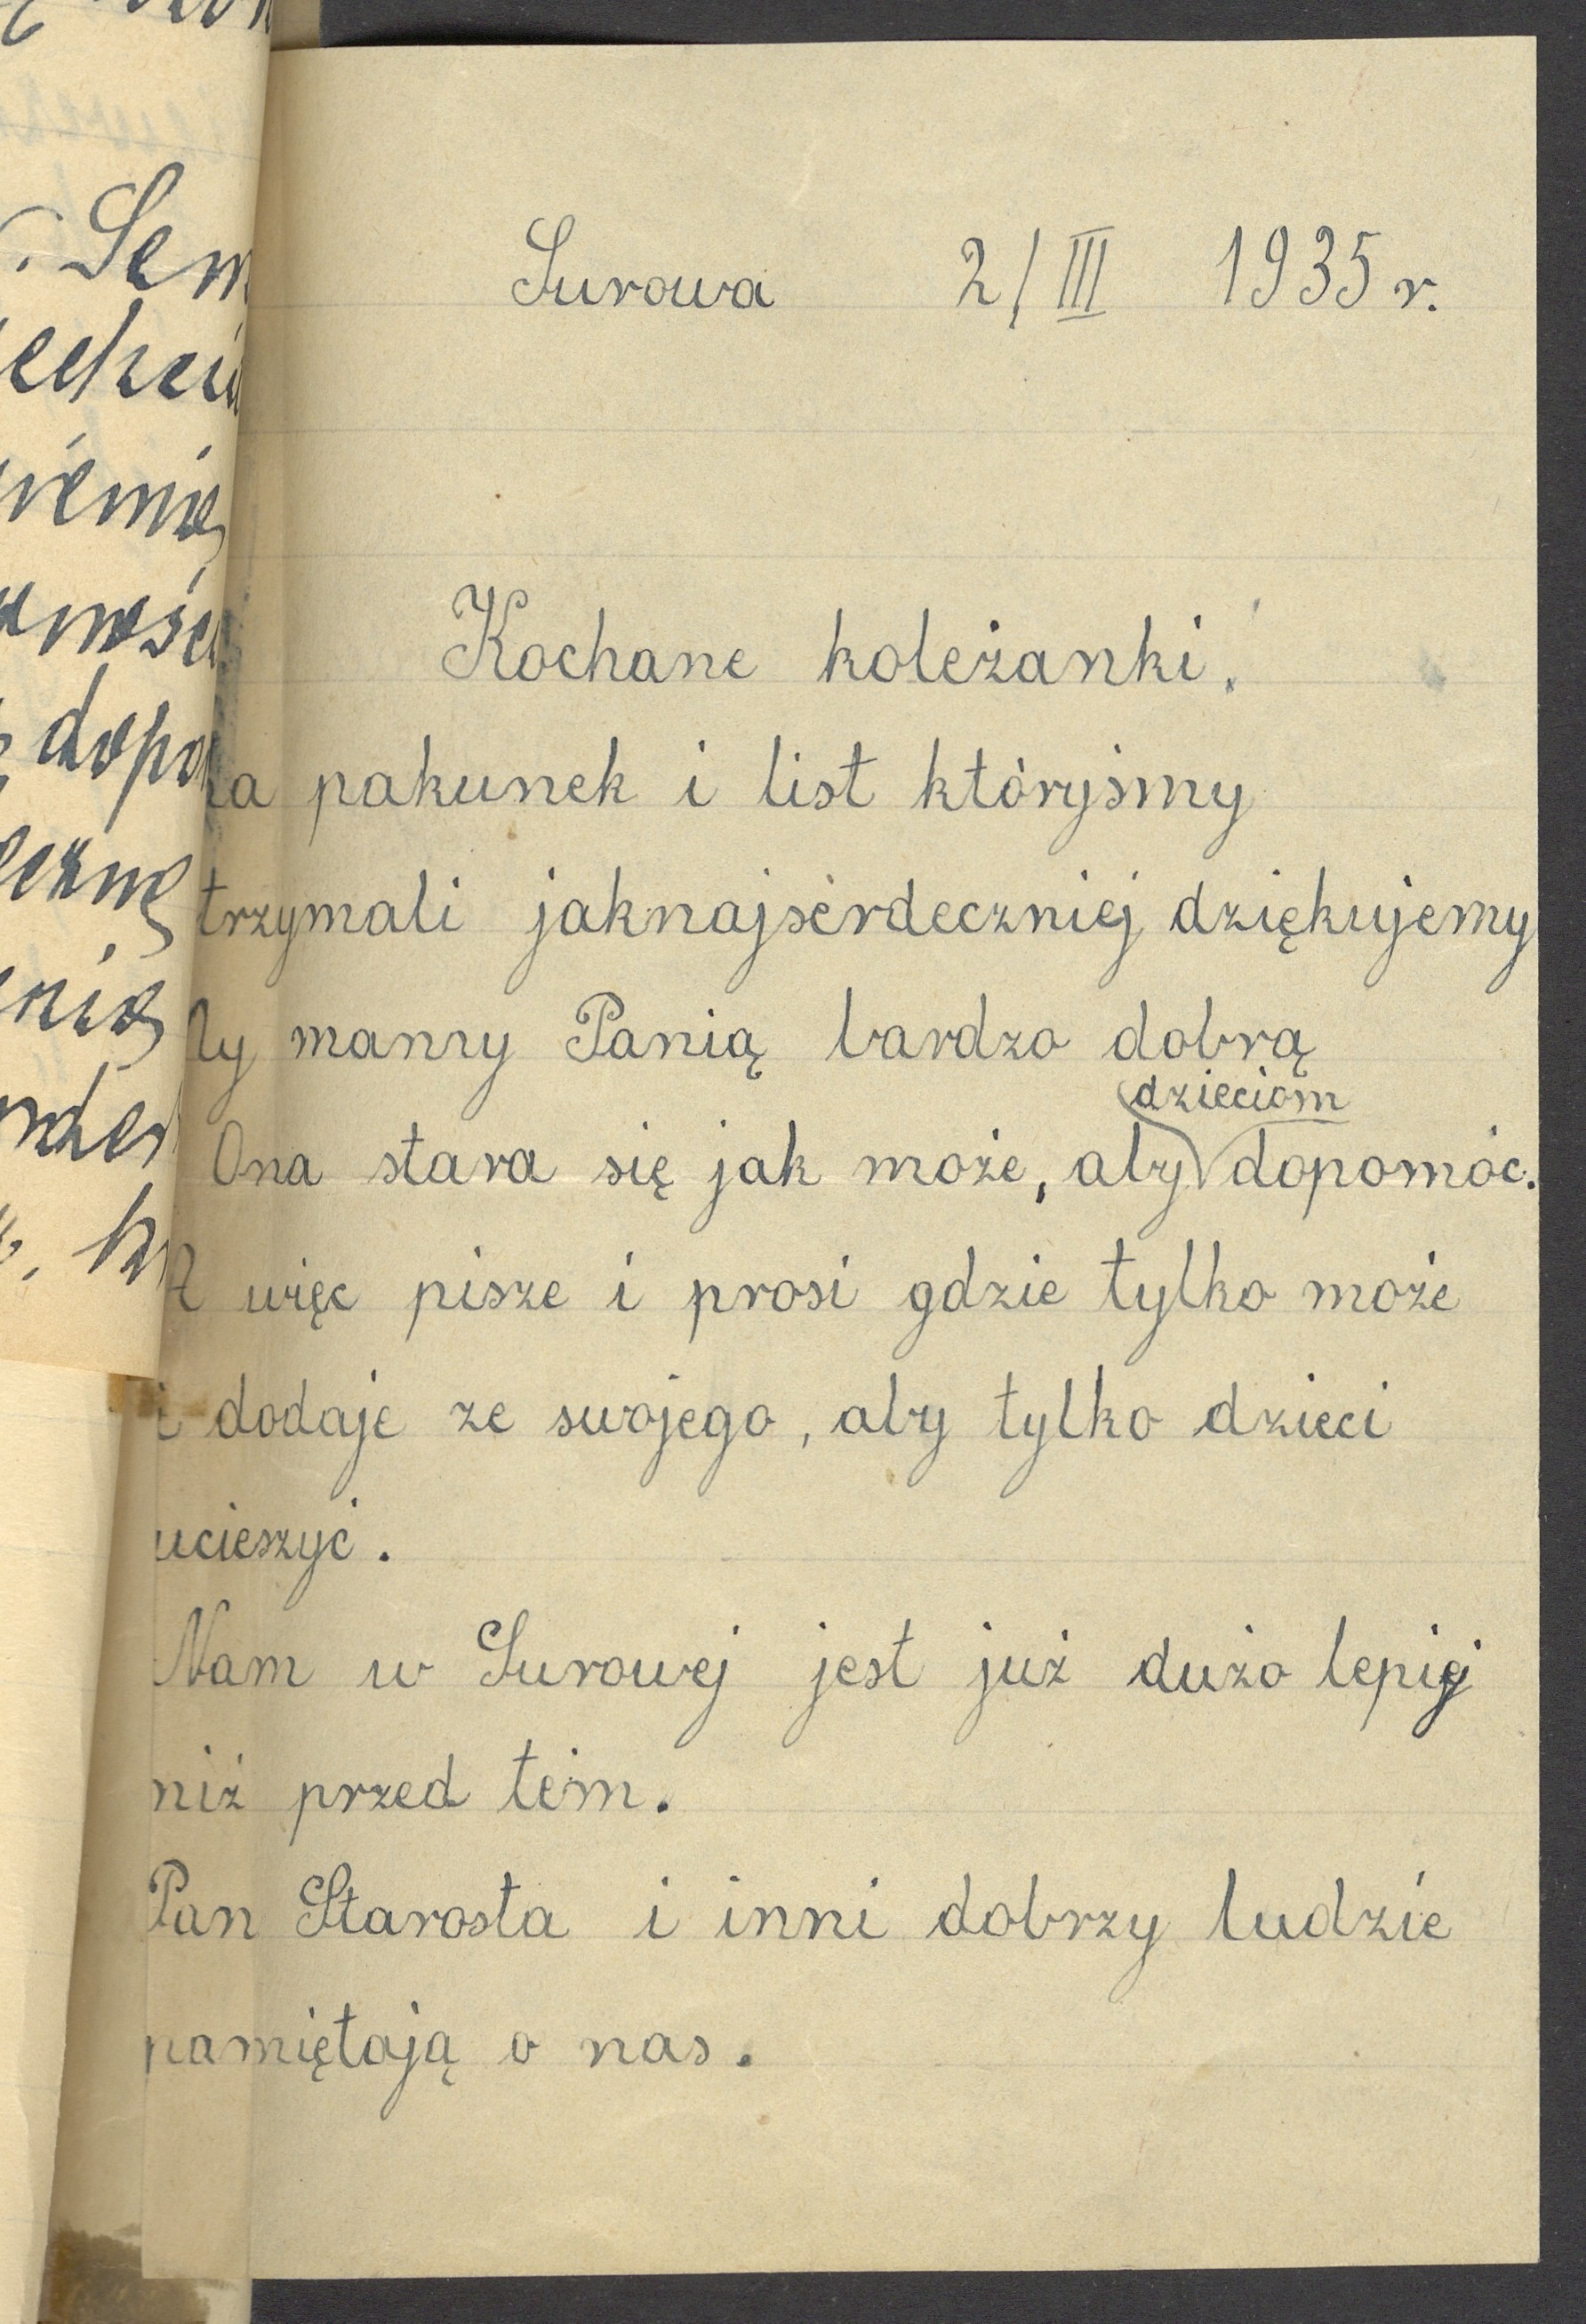 Surowa 2/III 1935 r.
Kochane koleżanki!
a pakunek i list któryśmy
trzymali jaknajserdeczniej dziękujemy
y mamy Panią bardzo dobrą
dzieciom
Ona stara się jak może, aby dopomóc.
A więc pisze i prosi gdzie tylko może
i dodaje ze swojego, aby tylko dzieci
ucieszyć.
Nam w Surowej jest już dużo lepiej
niż przed tem.
Pan Starosta i inni dobrzy ludzie
pamiętają o nas.